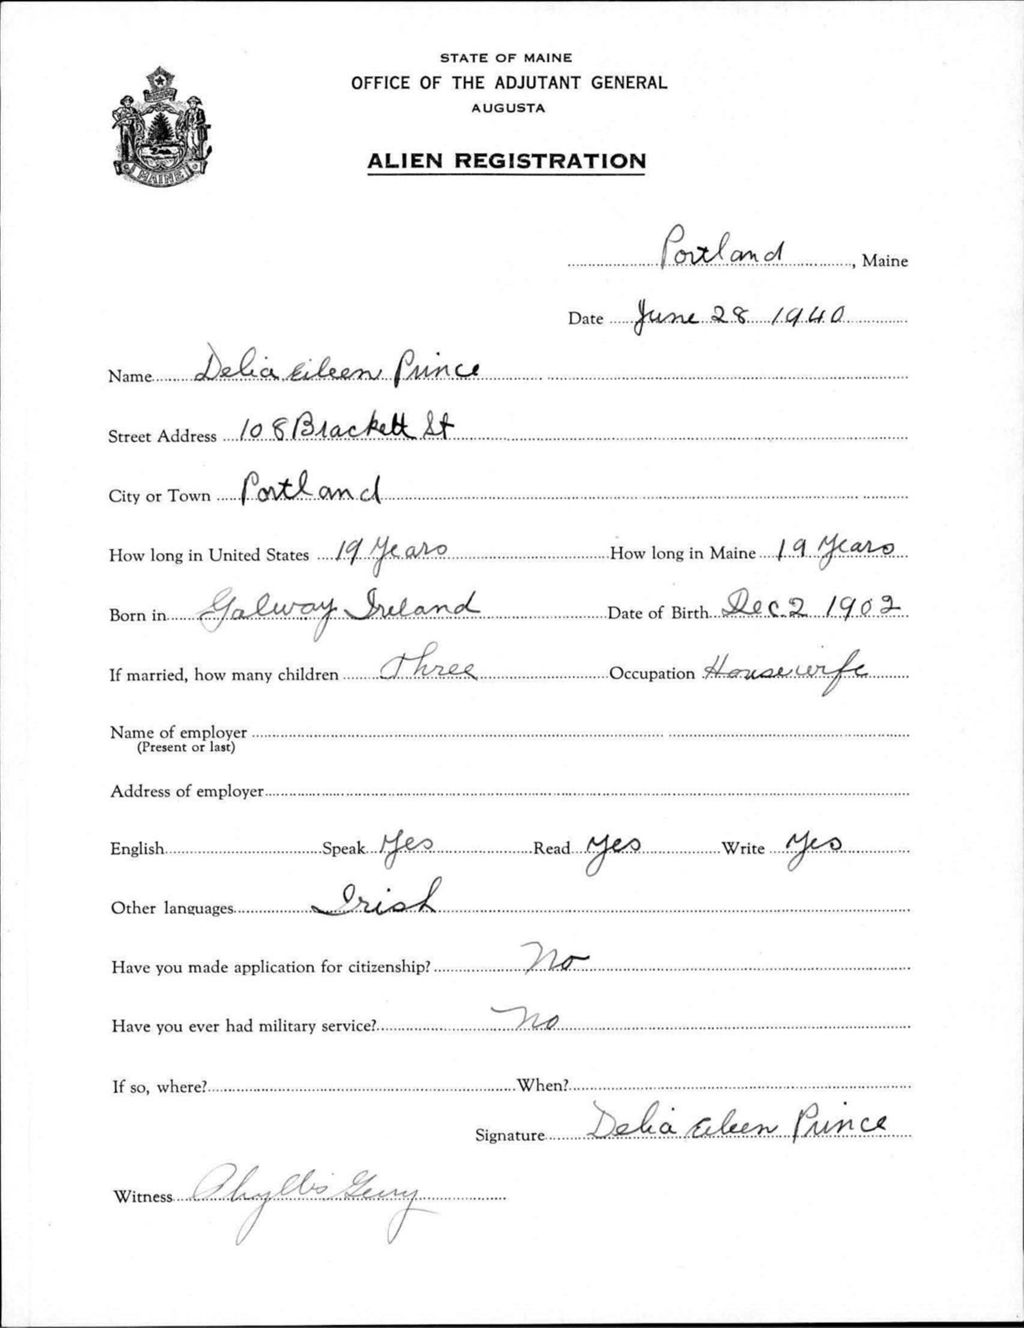 STATE OF MAINE
OFFICE OF THE ADJUTANT GENERAL
AUGUSTA
ALIEN REGISTRATION
MAINE
Portland, Maine
Date June 28 1940
Name Delia Eileen Prince
Street Address 108 Brackett St
City or Town Portland
How long in United States 19 Years How long in Maine 19 Years
Born in Galway Ireland Date of Birth Dec 2 1902
If married, how many children Three Occupation Housewife
Name of employer
(Present or last)
Address of employer
English Speak Yes Read Yes Write Yes
Other languages Irish
Have you made application for citizenship? No
Have you ever had military service? No
If so, where? When?
Signature Delia Eileen Prince
Witness Phyllis Gerry